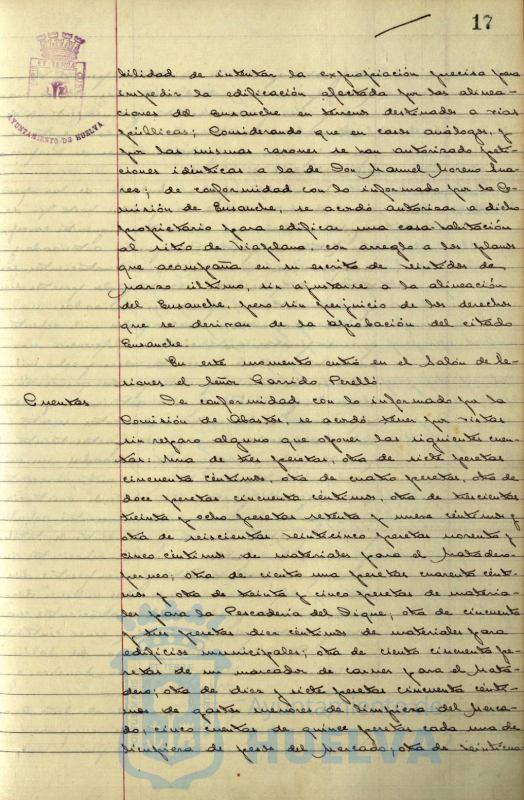 17
AYUNTAMIENTO DE HUELVA
bilidad de intentar la expropiación precisa para
impedir la edificación afectada por las alinea-
ciones del Ensanche en terrenos destinados a vías
públicas; Considerando que en casos análogos, y
por las mismas razones se han autorizado peti-
ciones idénticas a la de Don Manuel Moreno Sua-
res; de conformidad con lo informado por la Co-
misión de Ensanche, se acordó autorizar a dicho
propietario para edificar una casa-habitación
al sitio de Viaplana, con arreglo a los planos
que acompaña en su escrito de veintidos de
Marzo último, sin ajustarse a la alineación
del Ensanche, pero sin perjuicio de los derechos
que se derivan de la aprobación del citado
Ensanche.
En este momento entró en el Salón de Se-
siones el Señor Garrido Perelló.
Cuentas
De conformidad con lo informado por la
Comisión de Abastos, se acordó tener por vistas
sin reparo alguno que oponer las siguientes cuen-
tas: Una de tres pesetas, otra de siete pesetas
cincuenta céntimos, otra de cuatro pesetas, otra de
doce pesetas cincuenta céntimos, otra de trescientas
treinta y ocho pesetas setenta y nueve céntimos y
otra de seiscientas veinticinco pesetas noventa y
cinco céntimos de materiales para el Matadero
; otra de ciento una pesetas cuarenta cénti-
mos y otra de treinta y cinco pesetas de materia-
les para la Pescadería del Dique; otra de cincuenta
y tres pesetas diez céntimos de materiales para
edificios municipales; otra de ciento cincuenta pe-
setas de un marcador de carnes para el Mata-
dero; otra de diez y siete pesetas cincuenta cénti-
mos de gastos menores de limpieza del Merca-
do; cinco cuentas de quince pesetas cada una de
limpieza de pesos del Mercado; otra de veinticin
HUELVA